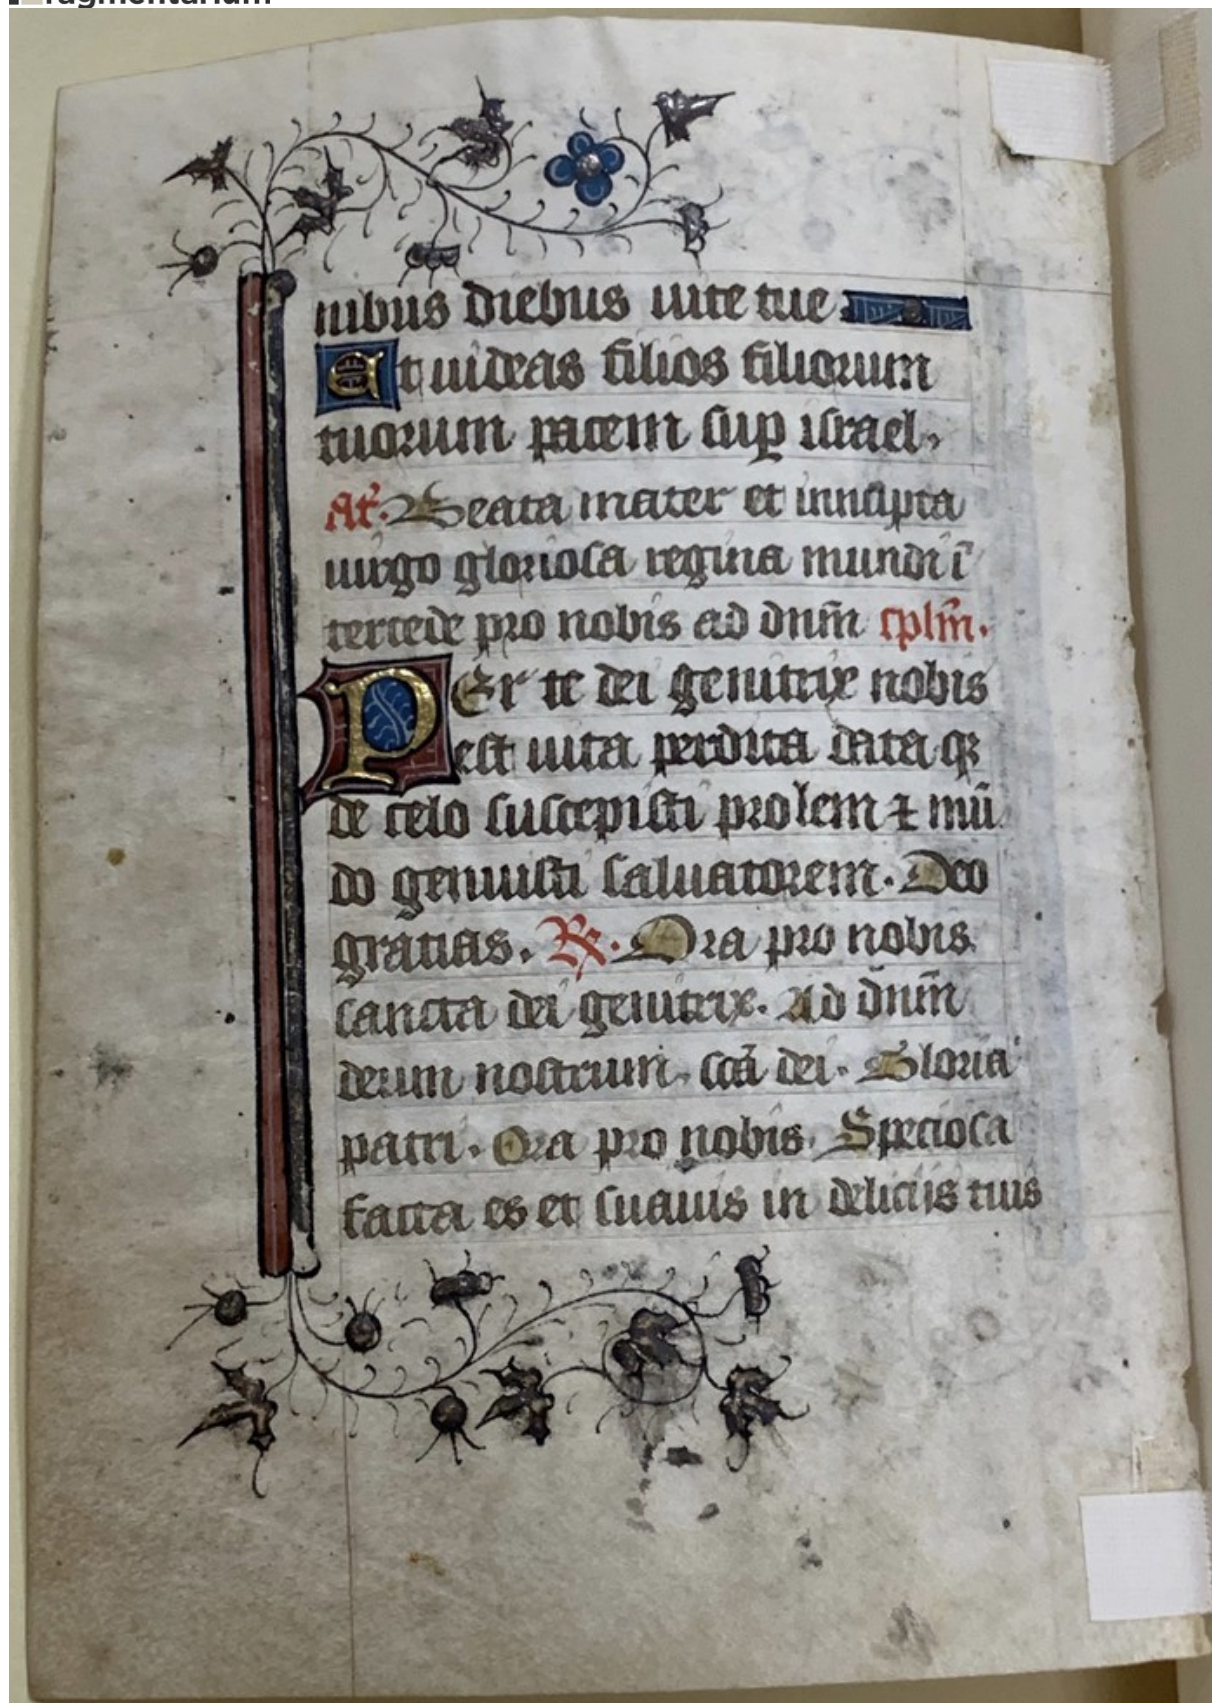 ragmentarium
nibus diebus uite tue
Et uideas filios filiorum
tuorum pacem suꝑ israel.
An̄. Beata mater et innupta
uirgo gloriosa regina mundi ī
tercede pro nobis ad dn̄m cplm̄.
PEr te dei genitrix nobis
est uita perdita data qꝫ
de celo suscepisti prolem ⁊ mū
do genuisti saluatorem. Deo
gratias. ℞. Ora pro nobis
sancta dei genitrix. Ad dn̄m
deum nostrum. sc̄a dei. Gloria
patri. Ora pro nobis. Speciosa
facta es et suauis in deliciis tuis